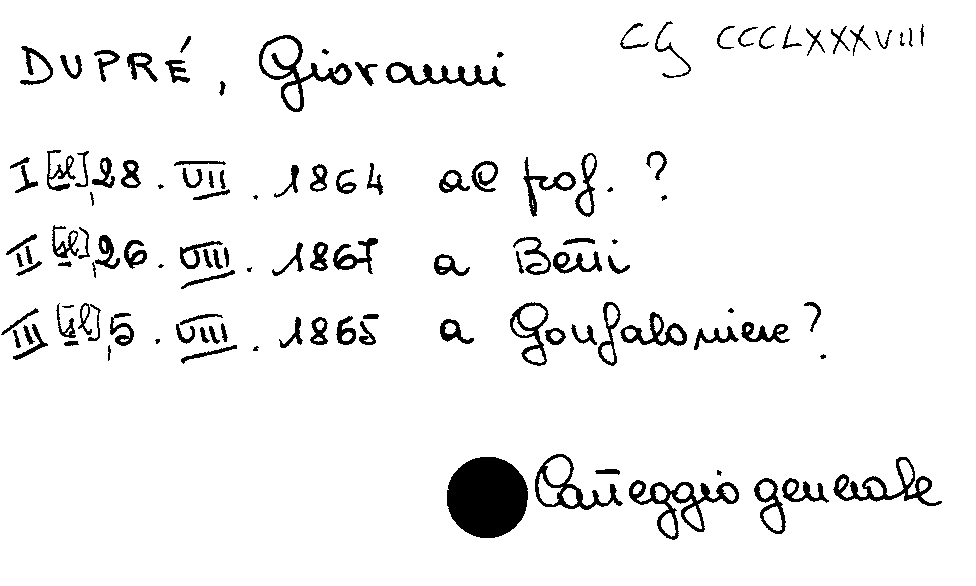 DUPRÉ, Giovanni CG CCCLXXXVIII
I [sl], 28. VII. 1864 al prof. ?
II [sl], 26. VIII. 1867 a Betti
III [sl], 5. VIII. 1865 a Gonfaloniere ?
Carteggio generale